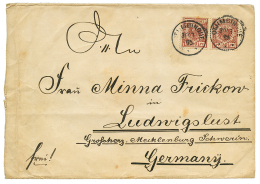 An
Frau Minna Frickow
in
Ludwigslust
Grossherz. Mecklenburg Schwerin.
frei!
Germany.